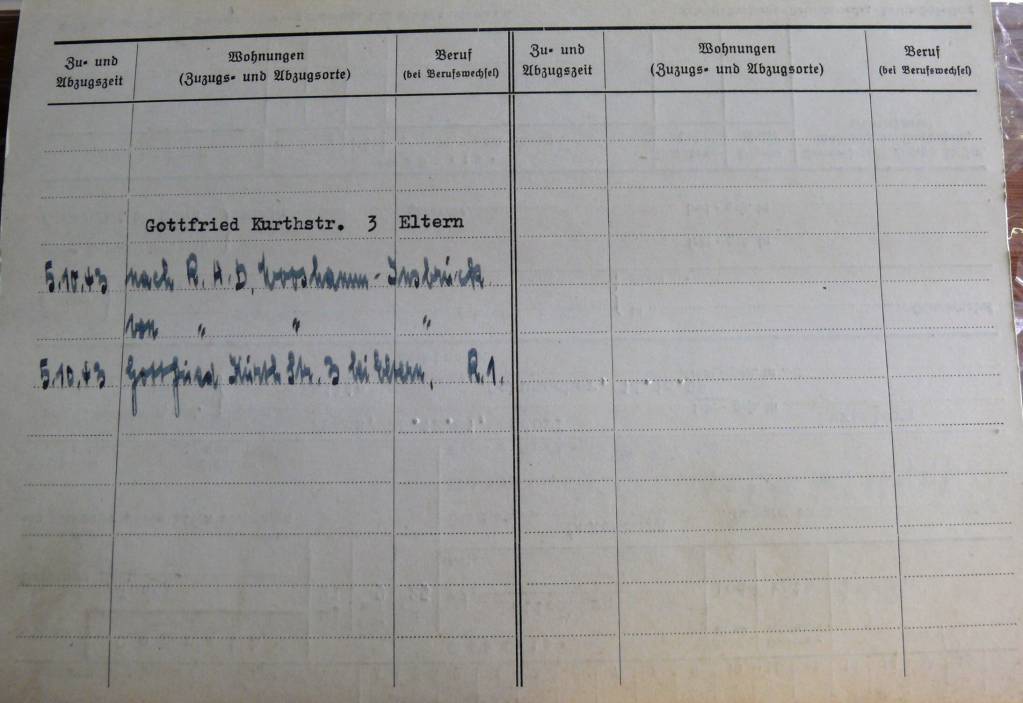 Zu- und Abzugszeit
Wohnungen (Zuzugs- und Abzugsorte)
Beruf (bei Berufswechsel)
Zu- und Abzugszeit
Wohnungen (Zuzugs- und Abzugsorte)
Beruf (bei Berufswechsel)
Gottfried Kurthstr. 3 Eltern
5.10.43 nach R.A.D. - Insbruck
von " " "
5.10.43 Gottfried Kurth Str. 3 bei Eltern, R.1.